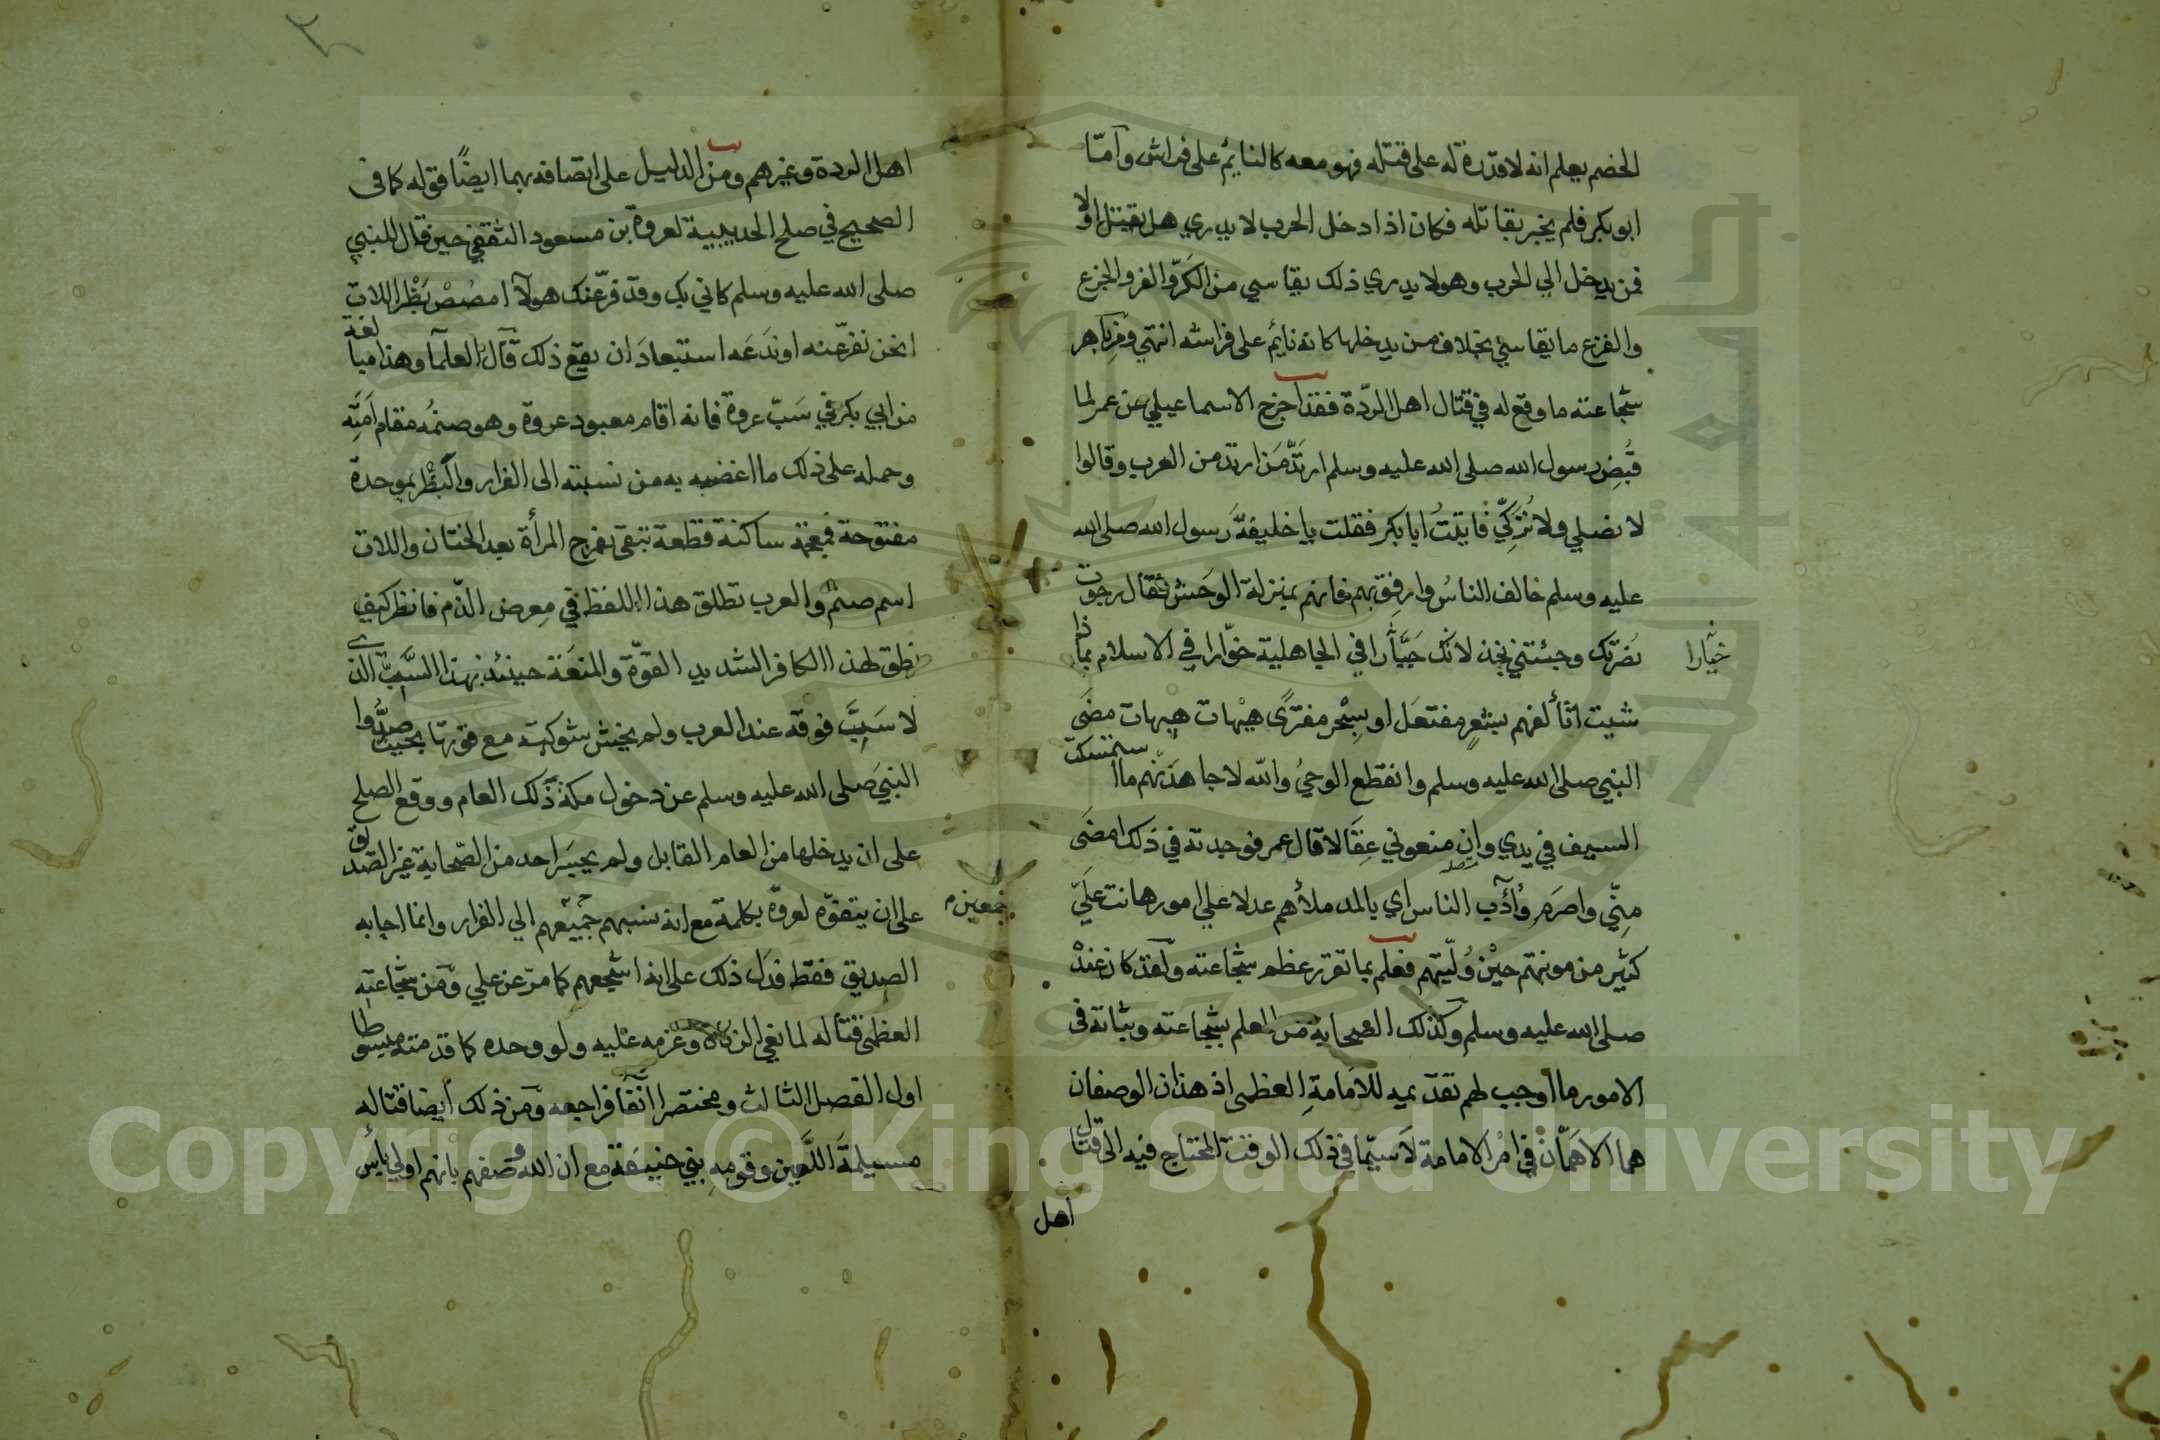 الخصم يعلم انه لا قدرة له على قتله فهو معه كالنايم على فراش وامّا
ابو بكر فلم يخبر بقاتله فكان اذا دخل الحرب لا يدري هل يقتل اولا
فمن يدخل الي الحرب وهو لا يدري ذلك يقاسي من الكَرّ والفر والجزع
والفزع ما يقاسي بخلاف من يدخلها كانه نايم على فراشه انتهي ومن باهر
شجاعته ما وقع له في قتال اهل الردّة فقد اخرج الاسماعيلي عن عمر لما
قُبِض رسول الله صلى الله عليه وسلم ارتدّ مَن ارتد من العرب وقالوا
لا نصلي ولا نُزكّي فاتيتُ ابا بكر فقلت يا خليفةَ رسول الله صلى الله
عليه وسلم خالف الناسُ وارفِق بهم فانهم بمنزلة الوَحش فقال رجوت
نصرتك وجئتني بخذلانك جبّارا في الجاهلية خوّارا في الاسلام بماذا
شيت اتألفهم بشعرٍ مفتعَل او بسِحْر مفترًى هيْهات هيهات مضَى
النبي صلى الله عليه وسلم وانقطع الوحيُ والله لاجاهدنّهم ما استمسك
السيف في يدي وان منعوني عِقَالا قال عمر فوجدته في ذلك امضَى
مِنّي واصرَم وأدّب الناس اي بالمد ملأهم عدلا علي امور هانت عَلَيّ
كثير من مونتهم حيْن وُلّيتهم فعلم بما تقرر عظم شجاعته ولقد كان عند
صلى الله عليه وسلم وكذلك الصحابة من العلم بشجاعته وثباته فى
الامور ما اوجب لهم تقديمه للامامةِ العظمى اذ هذان الوصفان
هما الاهمّان في امر الامامة لا سيّما في ذلك الوقت المحتاج فيه الى قتال
اهل
اهل الردة وغيرهم ومن الدليل على اتصافه بهما ايضًا قوله كما فى
الصحيح في صلح الحديبية لعروة بن مسعود الثقفي حين قال للنبي
صلى الله عليه وسلم كاني بك وقد فرّ عنك هولآ امصُصْ بَظْر اللات
انحن نفرّ عنه او ندَعَه استبعادَ ان يقع ذلك قال العلمآ وهذا مبالغة
من ابي بكر في سَبّ عروة فانه اقام معبود عروة وهو صنمُه مقام اَمّه
وحمله على ذلك ما اغضبه به من نسبته الى الفرار والبَظْر بموحدة
مفتوحة فمعجمة ساكنة قطعة تبقى بفرج المرأة بعد الختان واللات
اسم صنم والعرب تطلق هذا اللفظ في معرض الذّم فانظر كيف
نطق لهذا الكافر الشديد القوّة والمنعَة حينئذ بهذا السّبّ الذي
لا سَبَّ فوقه عند العرب ولم يخش شوكته مع قوتها بحيث صدُّوا
النبيَ صلى الله عليه وسلم عن دخول مكة ذلك العام ووقع الصلح
على ان يدخلها من العام القابل ولم يجسَر احد من الصّحابة غير الصّديق
على ان يتفوّه لعروة بكلمة مع انه نسبهم جميعهم الي الفرار وانما اجابه
الصديق فقط فدَل ذلك على انه اشجعهم كما مرّ عن علي ومن شجاعته
العظمى قتاله لما نعي الزكاة وعزمه عليه ولو وحده كما قدمته مبسوطا
اول الفصل الثالث ومختصرا آنفا فراجعه ومن ذلك ايضا قتاله
مسيلمةَ اللّعين وقومهِ بني حنيفة مع ان الله وصفهم بانهم اولي بأس
Copyright © King Saud University